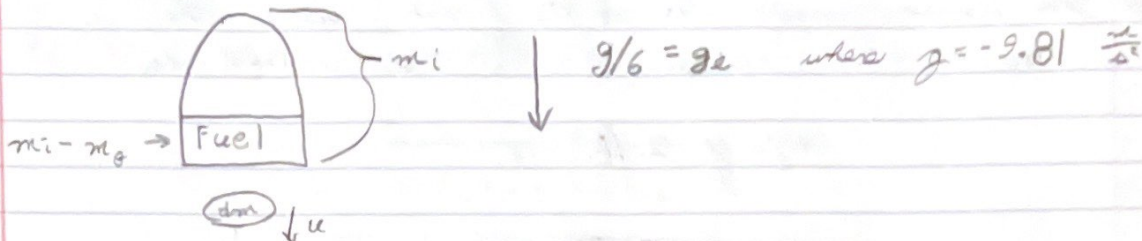 mi
g/6 = ge where g = -9.81 m/s²
mi - me → Fuel
dm ↓ u